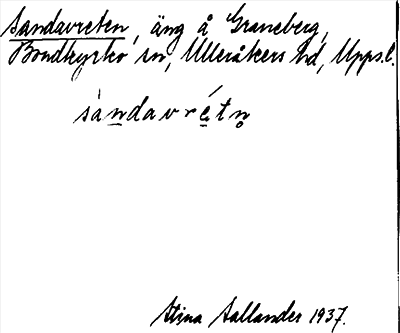 Sandavreten, äng å Graneberg,
Bondkyrko sn, Ulleråkers hd, Upps. l.
sàndavrétn̥
Stina Sallander 1937.